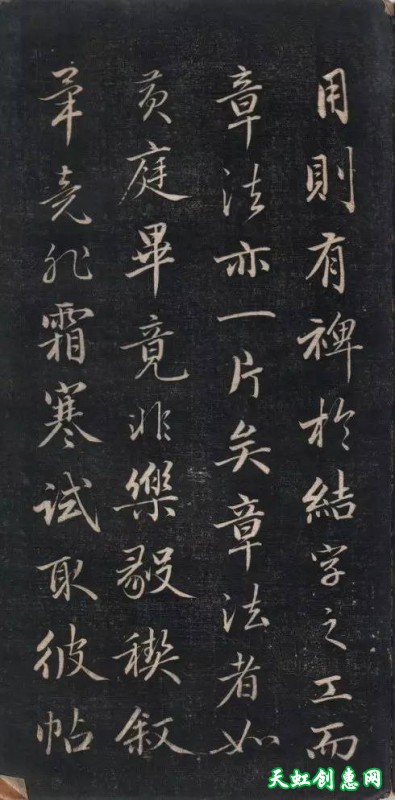 用則有裨於結字之工而
章法亦一片矣章法者如
黃庭畢竟非樂毅禊叙
畢竟非霜寒試取彼帖
天虹创惠网